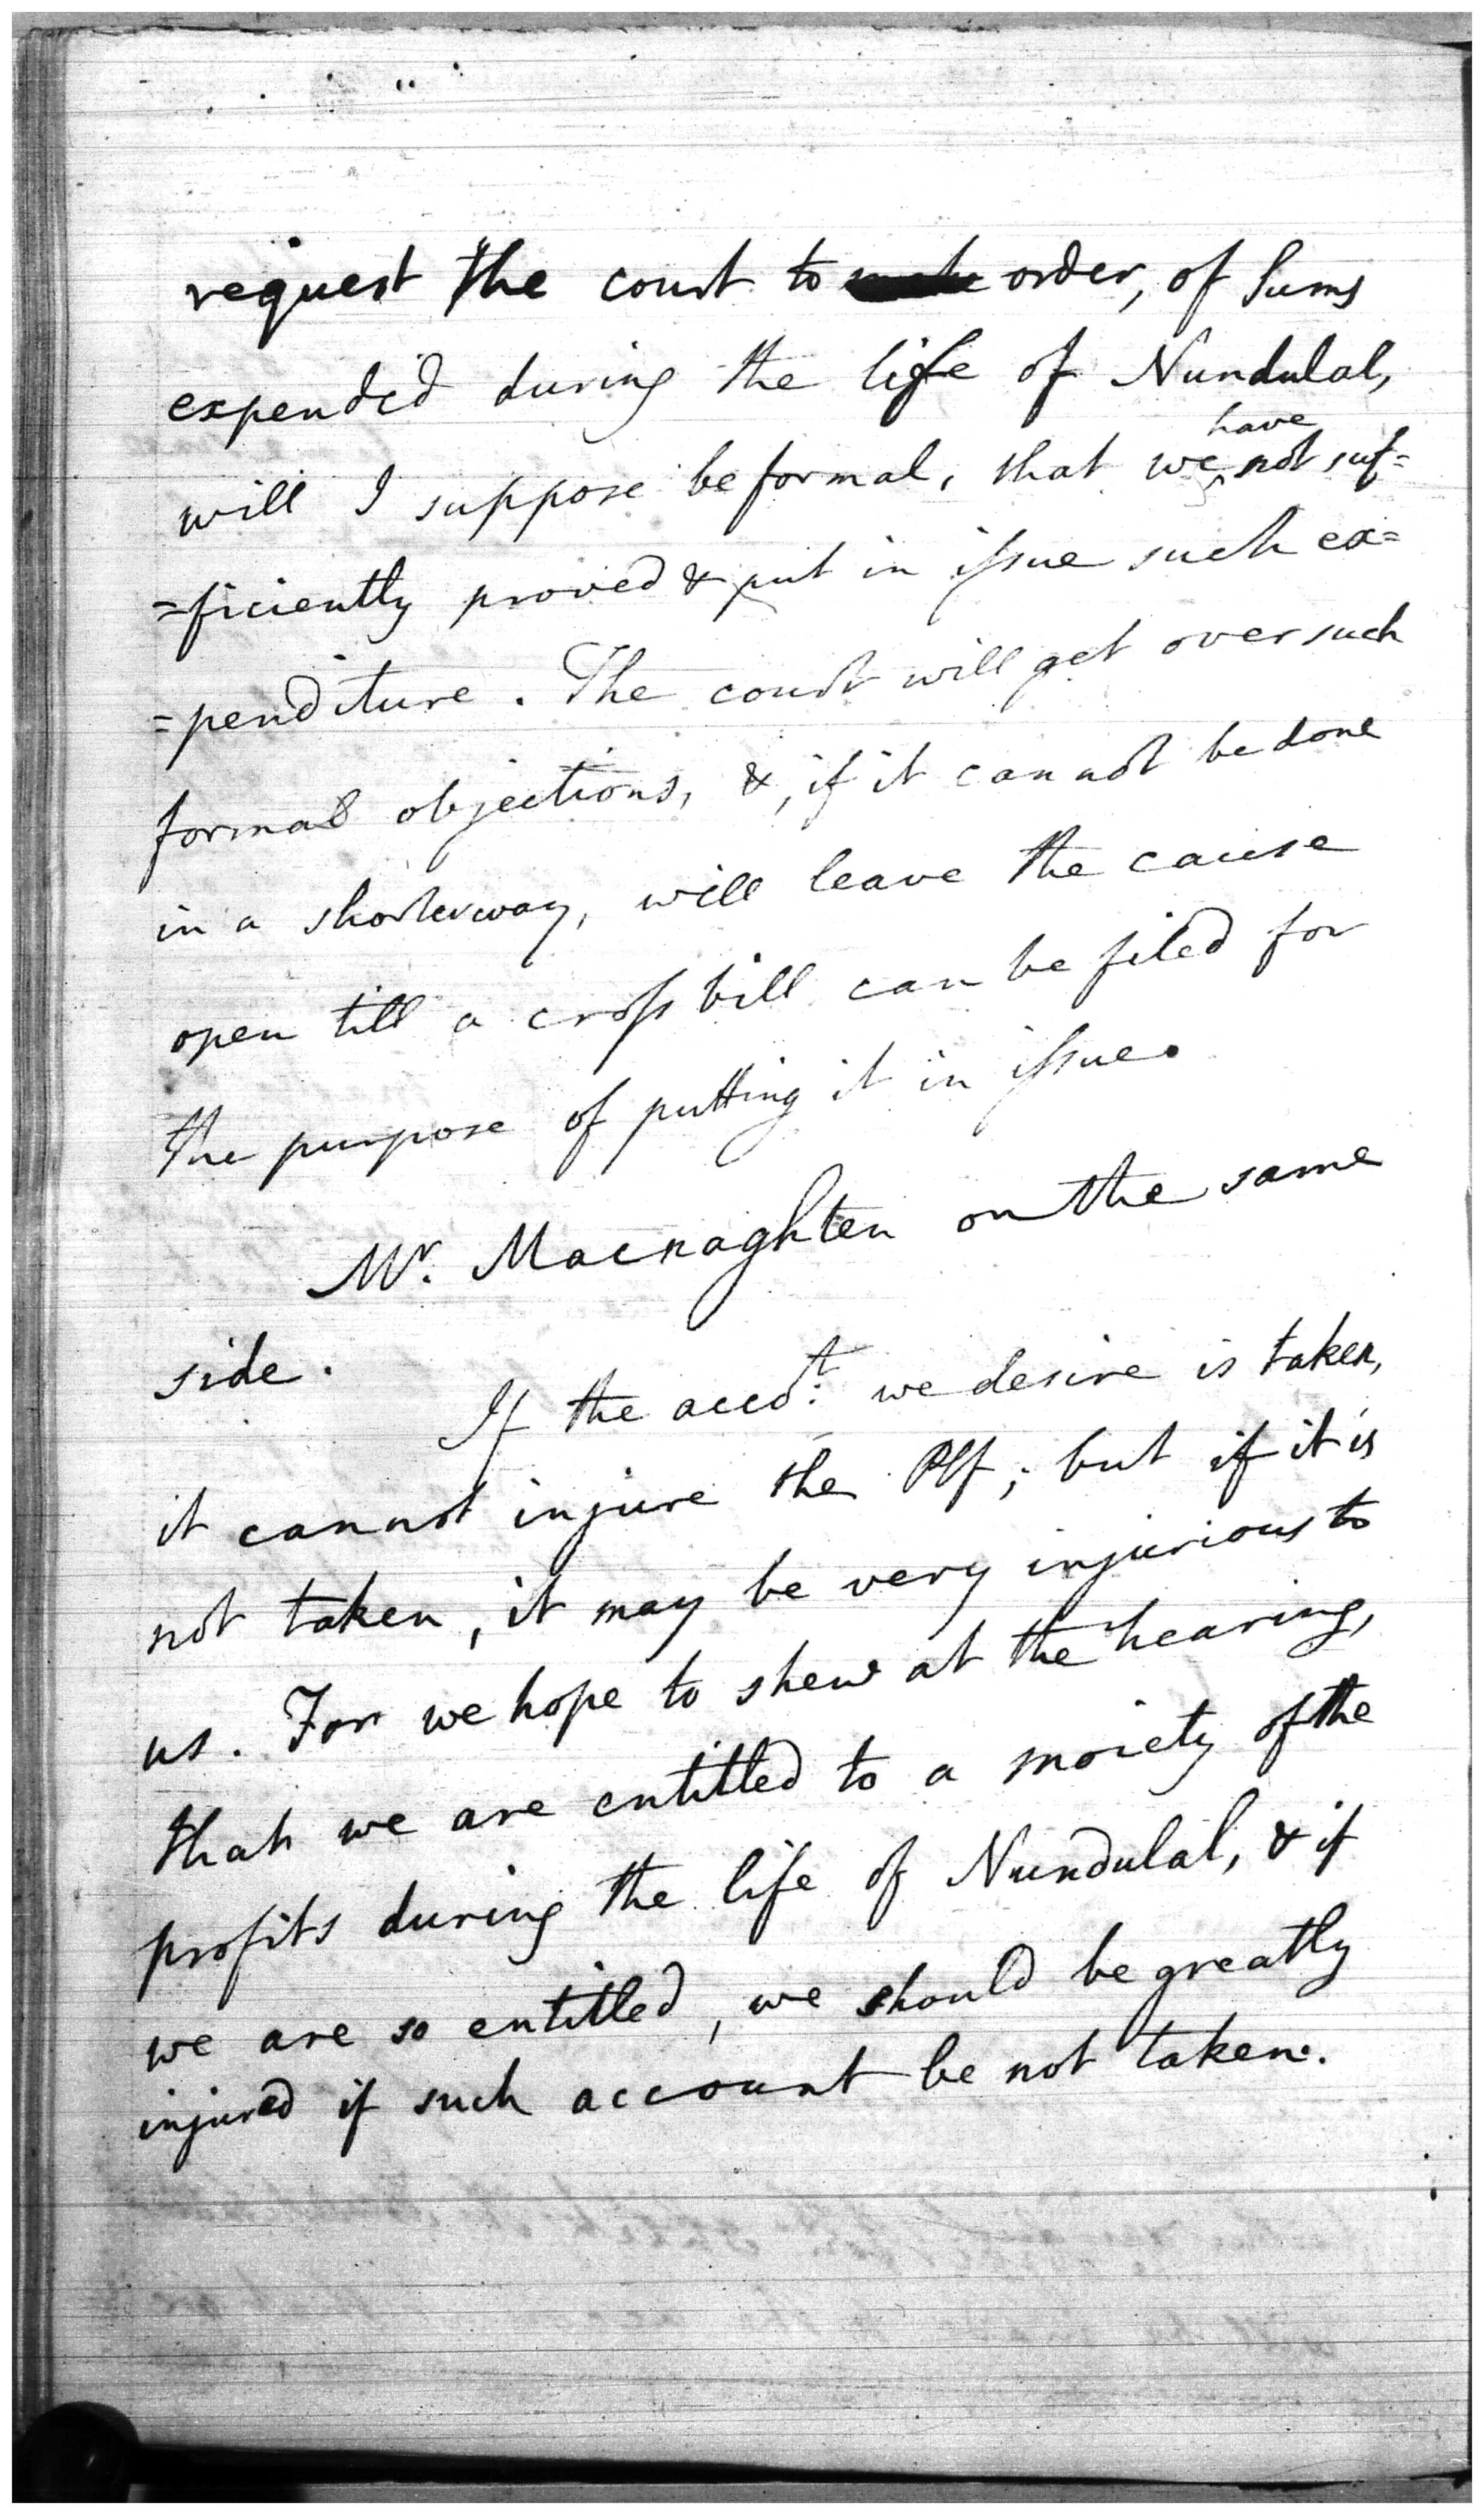 request the court to order, of Sums
expended during the life of Nundulal,
will I suppose be formal, that we have not suf=
=ficiently proved & put in issue such ex=
=penditure. The court will get over such
formal objections, &, if it cannot be done
in a shorter way, will leave the cause
open till a cross bill can be filed for
the purpose of putting it in issue.
Mr. Macnaghten on the same
side.
If the accot. we desire is taken,
it cannot injure the Plf; but if it is
not taken, it may be very injurious to
us. For we hope to shew at the hearing,
that we are entitled to a moiety of the
profits during the life of Nundulal, & if
we are so entitled, we should be greatly
injured if such account be not taken.